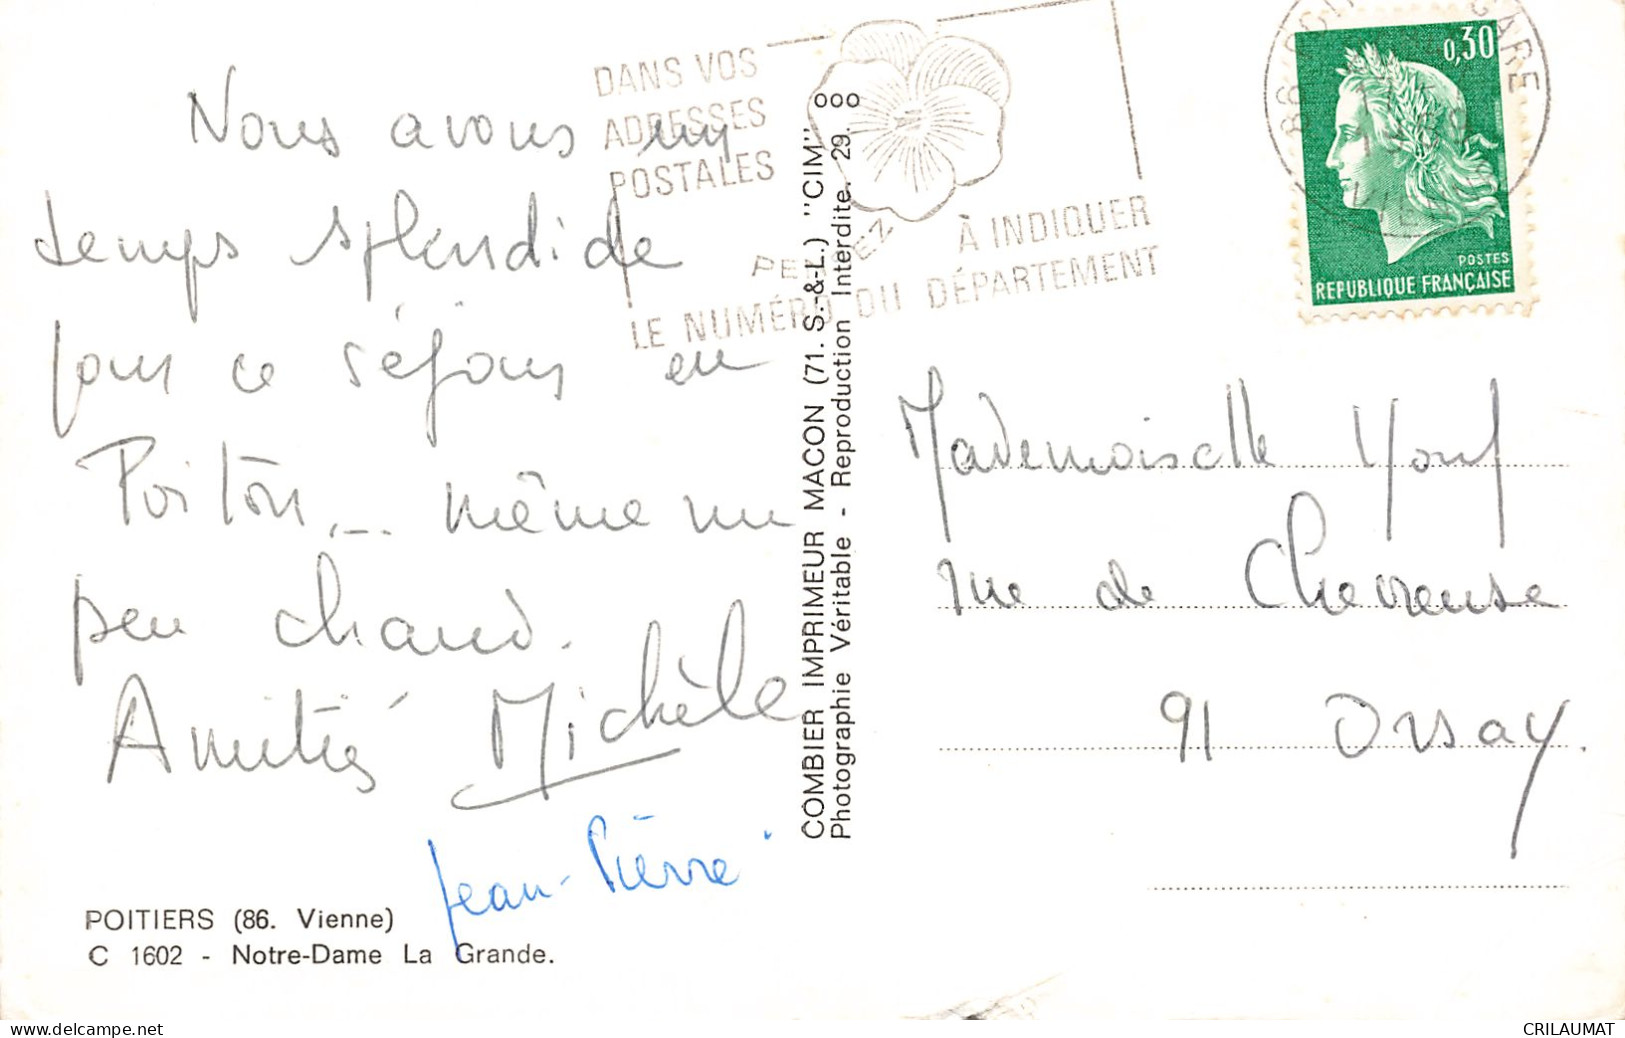 Nous avons un
temps splendide
pour ce séjour en
Poitou... même un
peu chaud.
Amitiés Michèle
Jean-Pierre
POITIERS (86. Vienne)
C 1602 - Notre-Dame La Grande.
DANS VOS
ADRESSES
POSTALES
PENSEZ À INDIQUER
LE NUMÉRO DU DÉPARTEMENT
COMBIER IMPRIMEUR MACON (71. S.-&-L.) "CIM" ooo
Photographie Véritable - Reproduction Interdite. 29.
GARE
0,30
POSTES
REPUBLIQUE FRANÇAISE
Mademoiselle
rue de Chevreuse
91 Orsay.
delcampe.net
CRILAUMAT